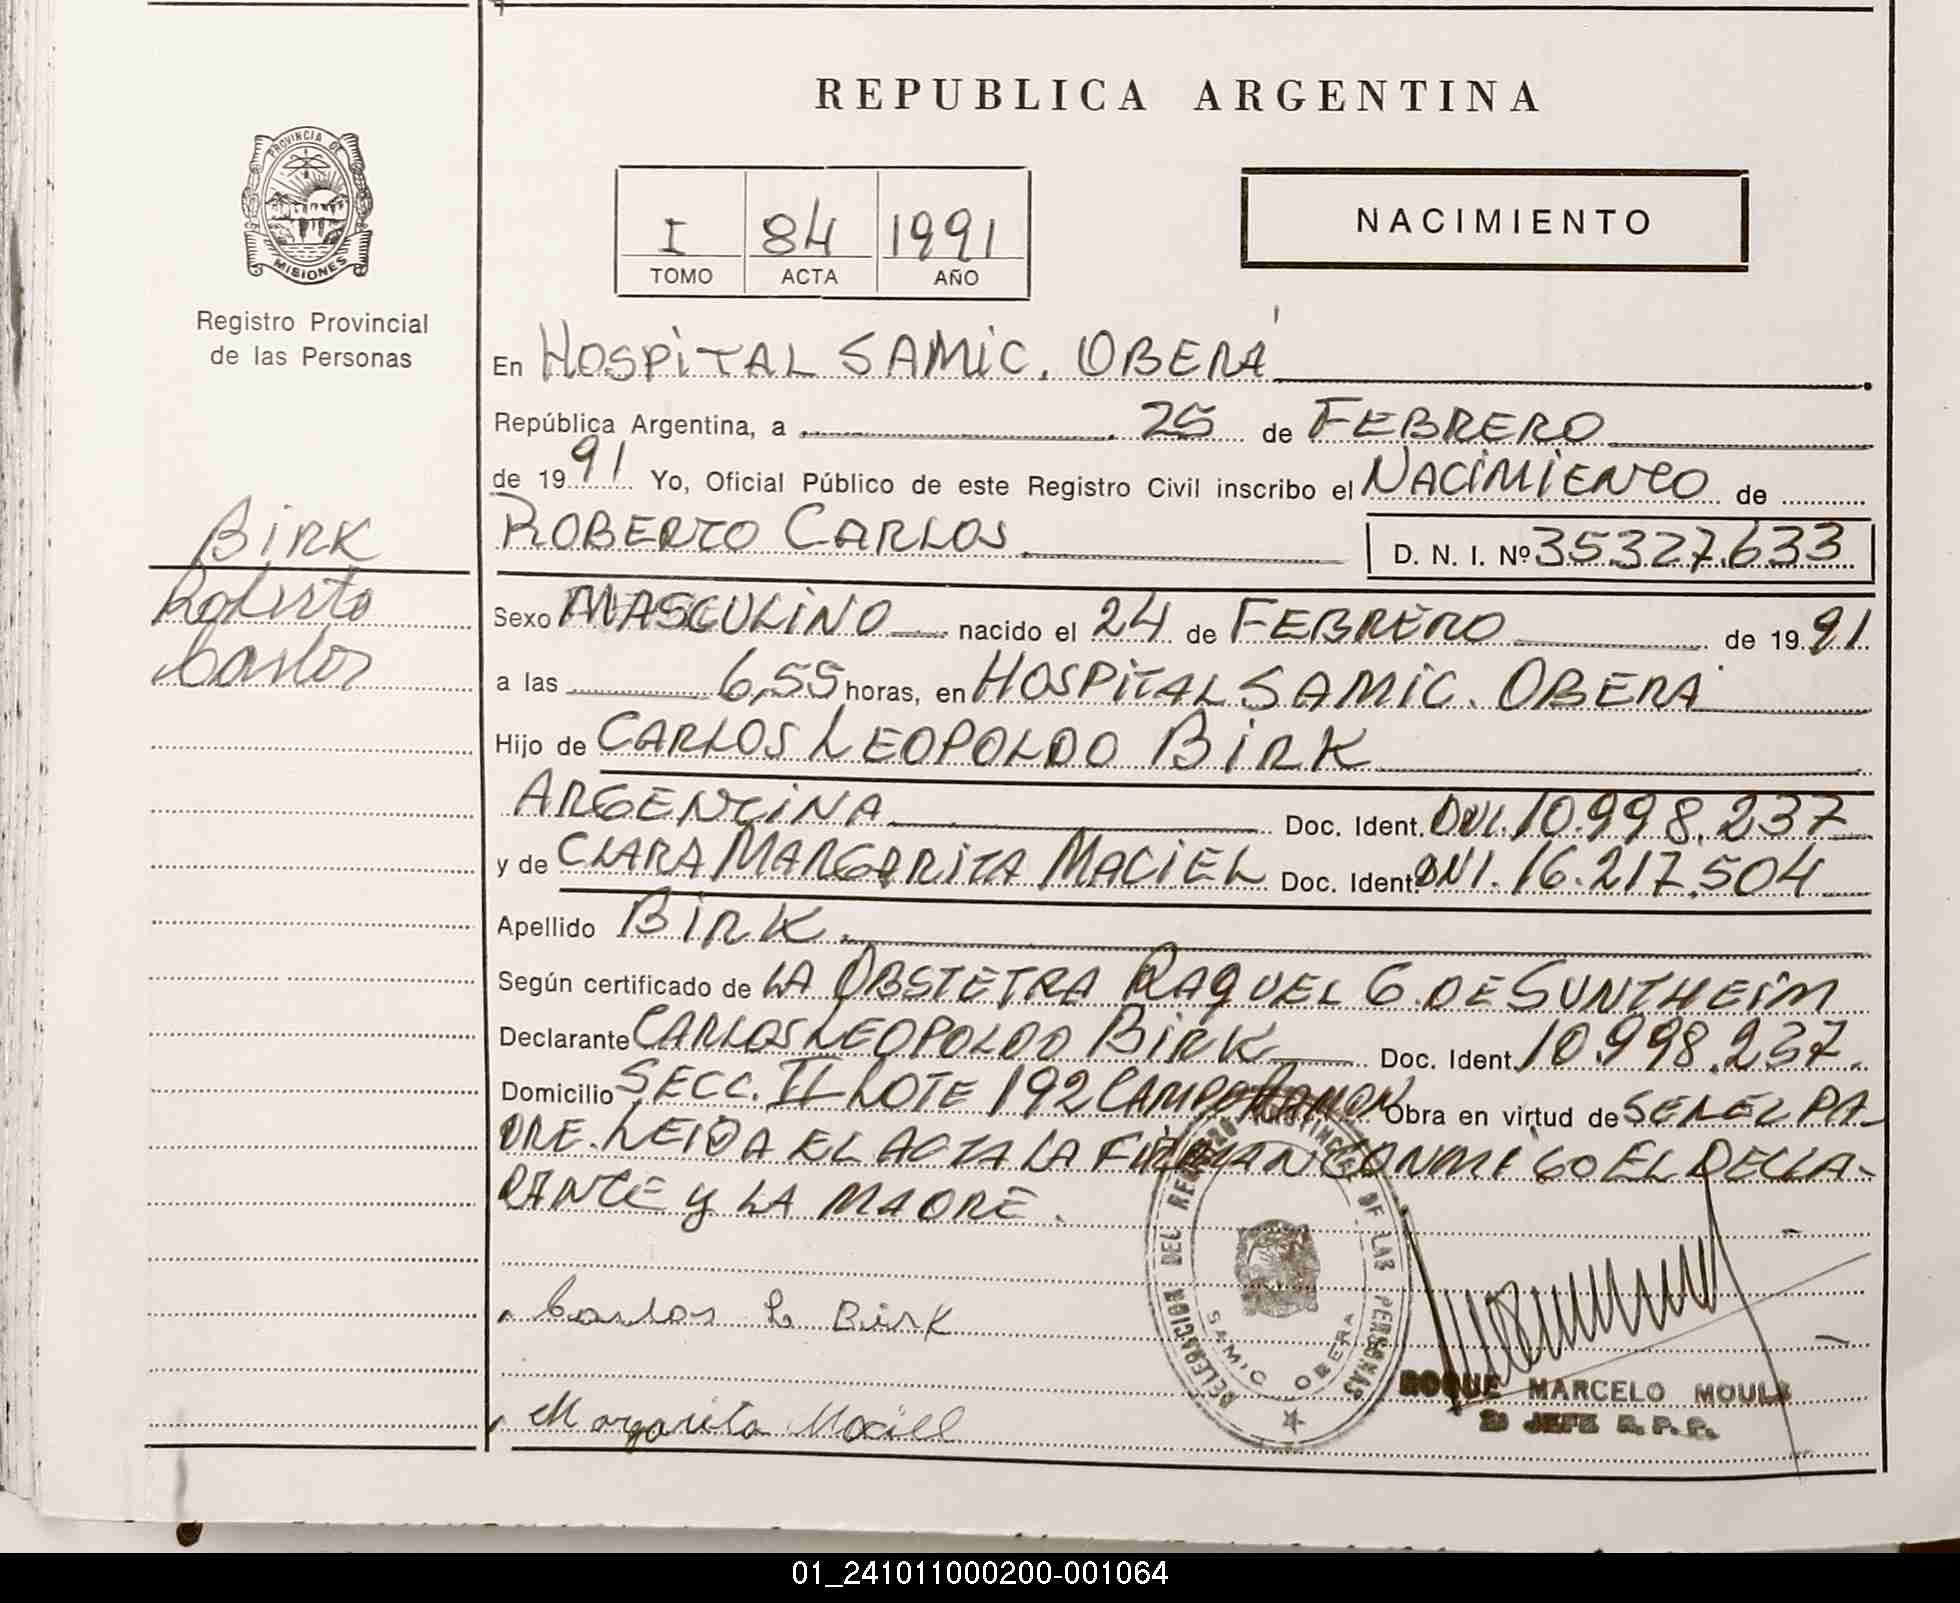 REPUBLICA ARGENTINA
PROVINCIA DE
MISIONES
Registro Provincial
de las Personas
I 84 1991
TOMO ACTA AÑO
NACIMIENTO
En HOSPITAL SAMIC. OBERÁ
República Argentina, a 25 de FEBRERO
de 1991 Yo, Oficial Público de este Registro Civil inscribo el NACIMIENTO de
ROBERTO CARLOS D. N. I. Nº 35.327.633
BIRK
Roberto
Carlos
Sexo MASCULINO nacido el 24 de FEBRERO de 1991
a las 6,55 horas, en HOSPITAL SAMIC. OBERA
Hijo de CARLOS LEOPOLDO BIRK
ARGENTINA Doc. Ident. DNI. 10.998.237
y de CLARA MARGARITA MACIEL Doc. Ident. DNI. 16.217.504
Apellido BIRK.
Según certificado de LA OBSTETRA RAQUEL G. DE SUNTHEIM
Declarante CARLOS LEOPOLDO BIRK Doc. Ident. 10.998.237.
Domicilio SECC. II LOTE 192 CAMPO RAMON Obra en virtud de SER EL PA-
DRE. LEIDA EL ACTA LA FIRMAN CONMIGO EL DECLA-
RANTE y LA MADRE.
Carlos L Birk
Margarita Maciel
DELEGACION DEL REGISTRO DE LAS PERSONAS
SAMIC OBERA
ROQUE MARCELO
JEFE R. P. P.
01_241011000200-001064